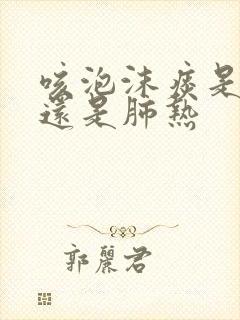 咳泡沫痰是
還是肺熱
郭麗君